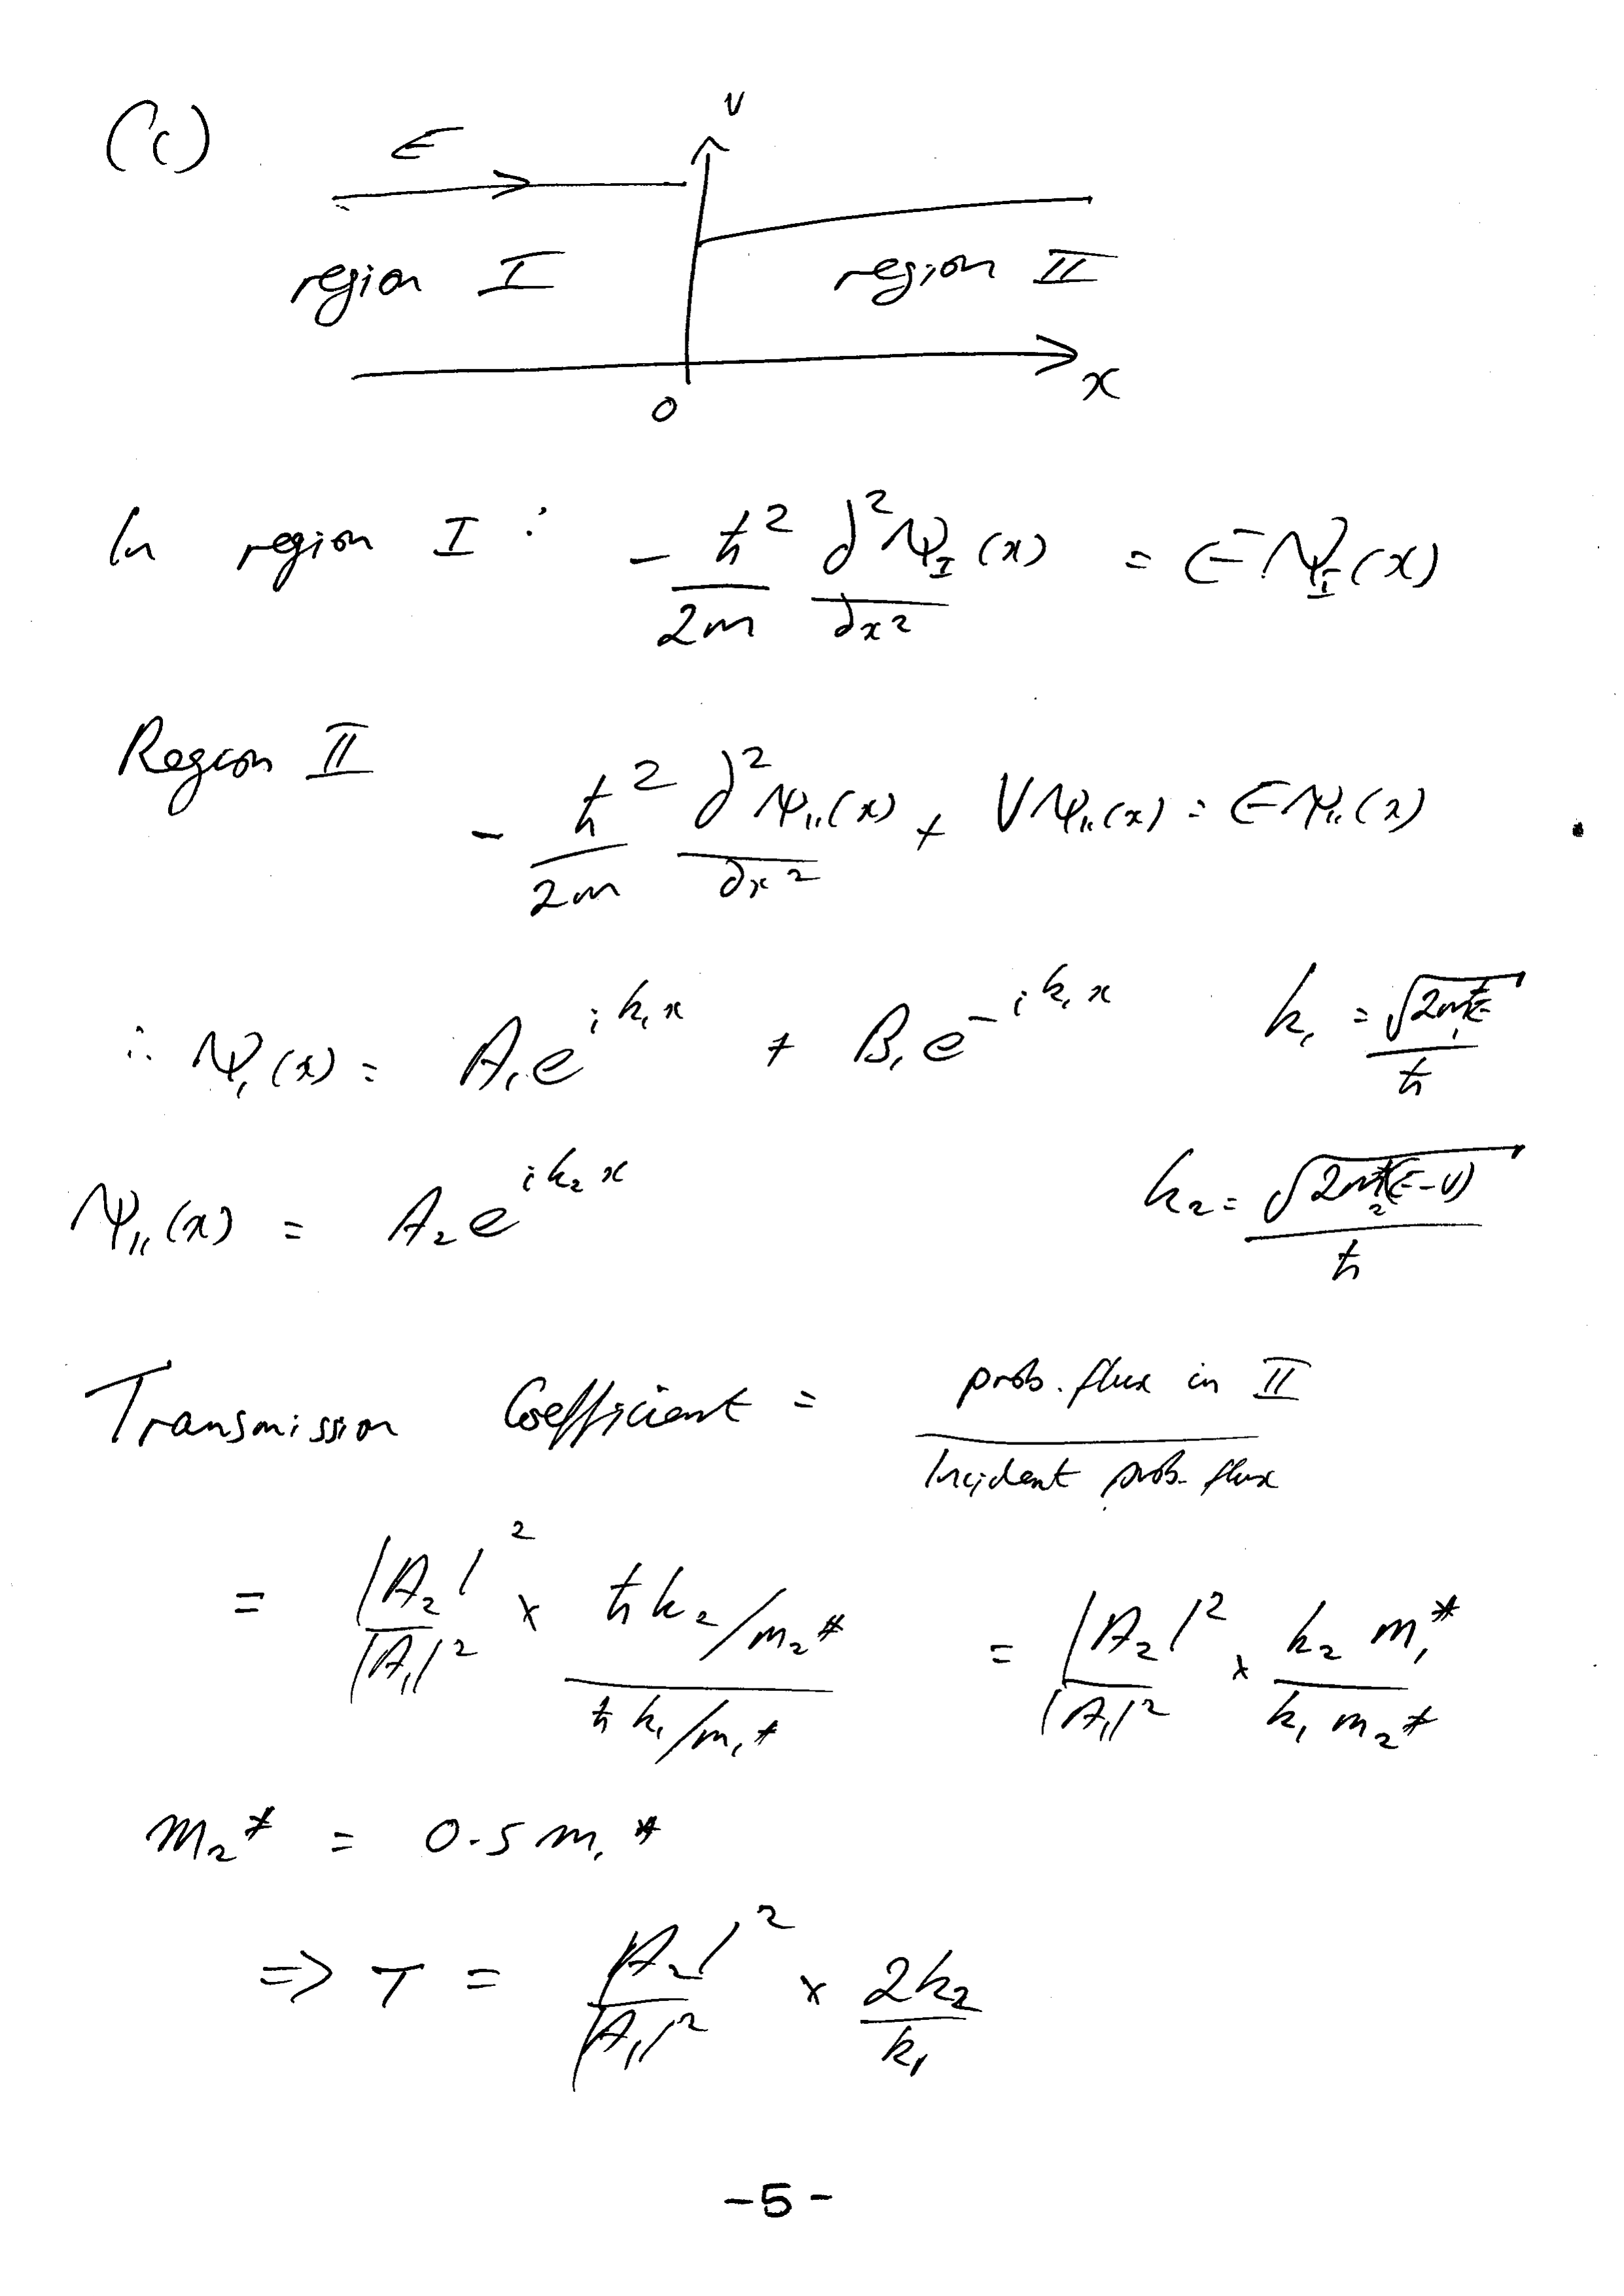 (c)
V
E
region I
region II
x
0
In region I : - ħ²/2m ∂²ψ_I(x)/∂x² = Eψ_I(x)
Region II
- ħ²/2m ∂²ψ_II(x)/∂x² + Vψ_II(x) = Eψ_II(x)
∴ ψ_I(x) = A₁e^{ik₁x} + B₁e^{-ik₁x} k₁ = √(2m₁*E)/ħ
ψ_II(x) = A₂e^{ik₂x} k₂ = √(2m₂*(E-V))/ħ
Transmission Coefficient = prob. flux in II / Incident prob. flux
= |A₂|²/|A₁|² × (ħk₂/m₂*)/(ħk₁/m₁*) = |A₂|²/|A₁|² × k₂ m₁*/k₁ m₂*
m₂* = 0.5 m₁*
⇒ T = |A₂|²/|A₁|² × 2k₂/k₁
-5-